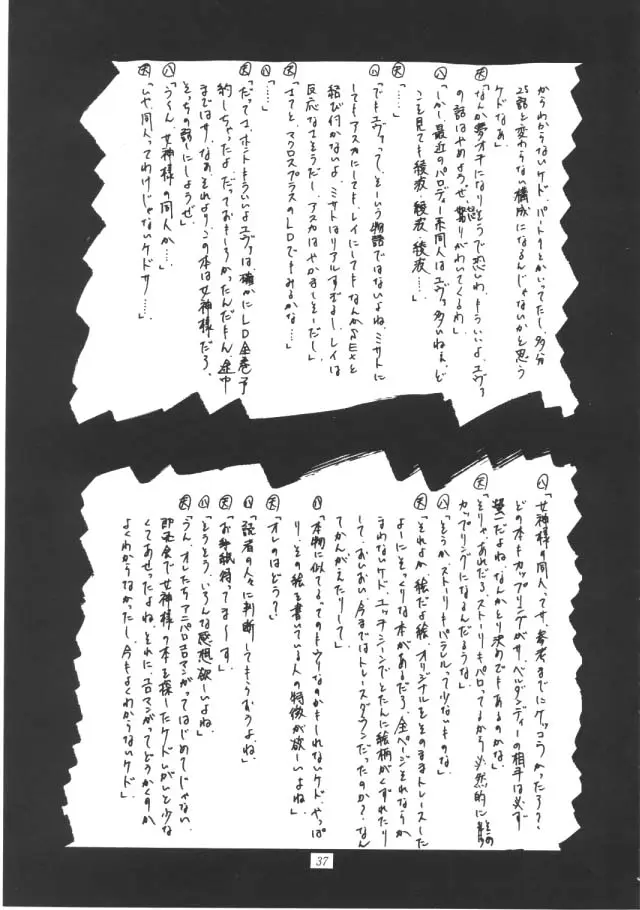 からわからないケド、パート2とかいってたし、多分
25話と変わらない構成になるんじゃないかと思う
ケドなぁ」
「なんか夢オチになりそうで恐いわ、もういいよエヴァ
の話はやめようぜ、怒りがわいてくるわ」
八「しかし最近のパロディー系同人はエヴァ多いねぇ、ど
こを見ても綾波・綾波・綾波……」
「……」
八「でもエヴァって、そーいう物語ではないよね、ミサトに
してもアスカにしても、レイにしてもなんかSEXと
結び付かないよ、ミサトはリアルすぎるし、レイは
反応なさそうだし、アスカはやかましそーだし」
「さてと、マクロスプラスのLDでもみるかな…」
八「……」
「だってさ、ホントもういいよエヴァは、確かにLD全巻予
約しちゃったよ、だっておもしろかったんだもん、途中
まではサ、なぁ、それよりこの本は女神様だろ、
そっちの話にしようぜ」
八「うーん、女神様の同人か…」
「いや同人ってわけじゃないケドサ……」
八「女神様の同人ってサ、参考までにケッコウかったろ?
どの本もカップリングがサ、ベルダンディーの相手は必ず
螢一だよね、なんかとり決めでもあるのかな」
「そりゃあれだろ、ストーリーもパロってるから必然的にその
カップリングになるんだろうな」
八「そうか、ストーリーもパラレルって少ないものな」
「それよか絵だよ絵、オリジナルをそのままトレースした
よーにそっくりな本があるだろ、全ページそれならか
まわないケド、エッチシーンでとたんに絵柄がくずれたり
して、おいおい、今まではトレースダウンだったのか?なん
てかんがえたりして」
八「本物に似てるってのもウリなのかもしれないケド、やっぱ
り、その絵を書いている人の特徴が欲しいよね」
「オレのはどう?」
八「読者の人々に判断してもらおうよね」
「お手紙待ってまーす」
八「そうそう、いろんな感想欲しいよね」
「うん、オレたちアニパロエロマンガってはじめてじゃない、
即売会で女神様の本を探したケドいがいと少な
くてあせったよね、それにエロマンガってどうかくのか
よくわからなかったし、今もよくわからないケド」
37